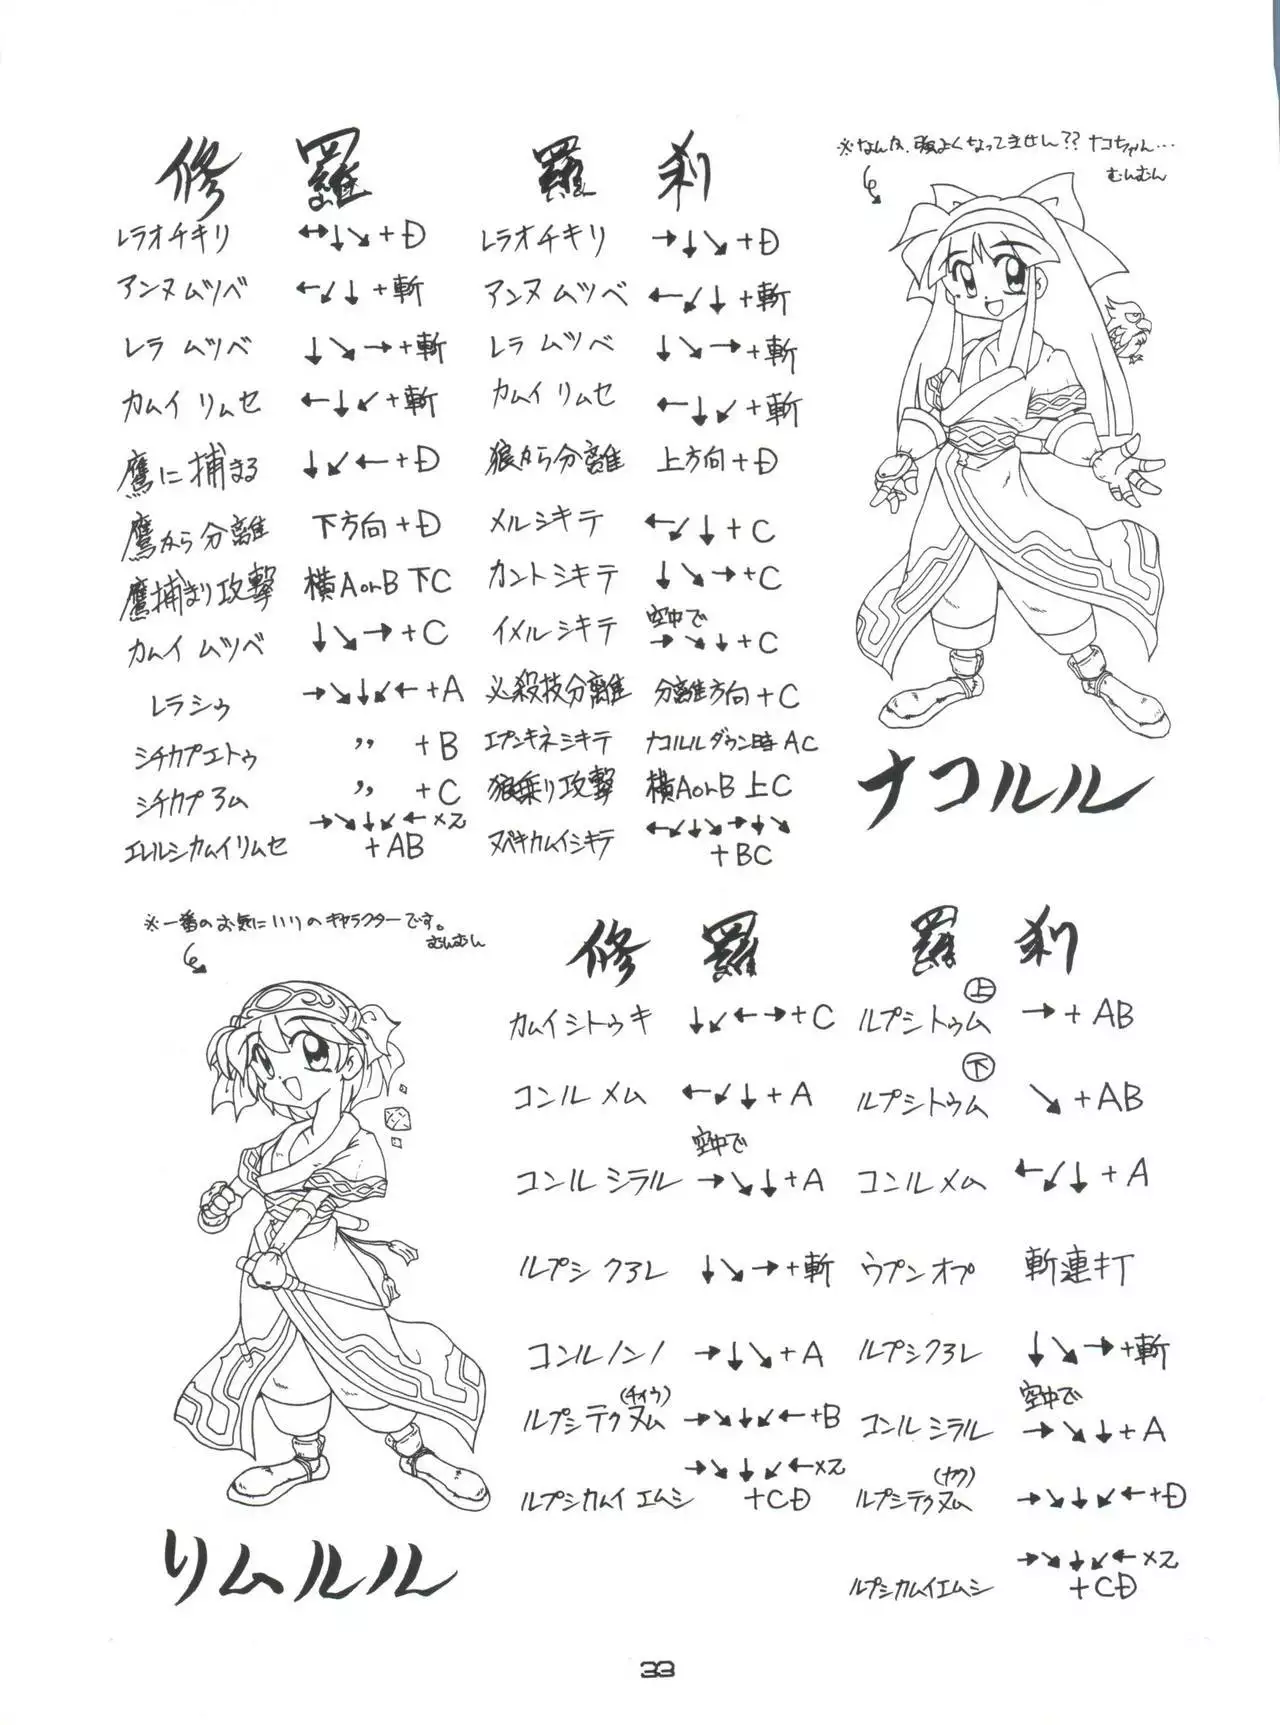 修羅
レラオチキリ ↔↓↘+D
アンヌムツベ ←↙↓+斬
レラ ムツベ ↓↘→+斬
カムイ リムセ ←↓↙+斬
鷹に捕まる ↓↙←+D
鷹から分離 下方向+D
鷹捕まり攻撃 横AorB 下C
カムイ ムツベ ↓↘→+C
レラシゥ →↘↓↙←+A
シチカプエトゥ 〃 +B
シチカプ ヨム 〃 +C
エレルシカムイリムセ →↘↓↙←×2 +AB
羅刹
レラオチキリ →↓↘+D
アンヌ ムツベ ←↙↓+斬
レラ ムツベ ↓↘→+斬
カムイ リムセ ←↓↙+斬
狼から分離 上方向+D
メルシキテ ←↙↓+C
カントシキテ ↓↘→+C
イメルシキテ 空中で →↘↓+C
必殺技分離 分離方向+C
エプンキネシキテ ナコルルダウン時AC
狼乗り攻撃 横AorB 上C
ヌペキカムイシキテ ←↙↓↘→↓↘ +BC
※なんか、強よくなってません?? ナコちゃん…
むんむん
ナコルル
※一番のお気にいりのキャラクターです。
むんむん
リムルル
修羅
カムイシトゥキ ↓↙←→+C
コンルメム ←↙↓+A
コンルシラル 空中で →↘↓+A
ルプシクヨレ ↓↘→+斬
コンルノンノ →↓↘+A
ルプシテクヌム(チィウ) →↘↓↙←+B
ルプシカムイエムシ →↘↓↙←×2 +CD
羅刹
ルプシトゥム上 →+AB
ルプシトウム下 ↘+AB
コンルメム ←↙↓+A
ウプンオプ 斬連打
ルプシクヨレ ↓↘→+斬
コンルシラル 空中で →↘↓+A
ルプシテクヌム(ヤク) →↘↓↙←+D
ルプシカムイエムシ →↘↓↙←×2 +CD
33